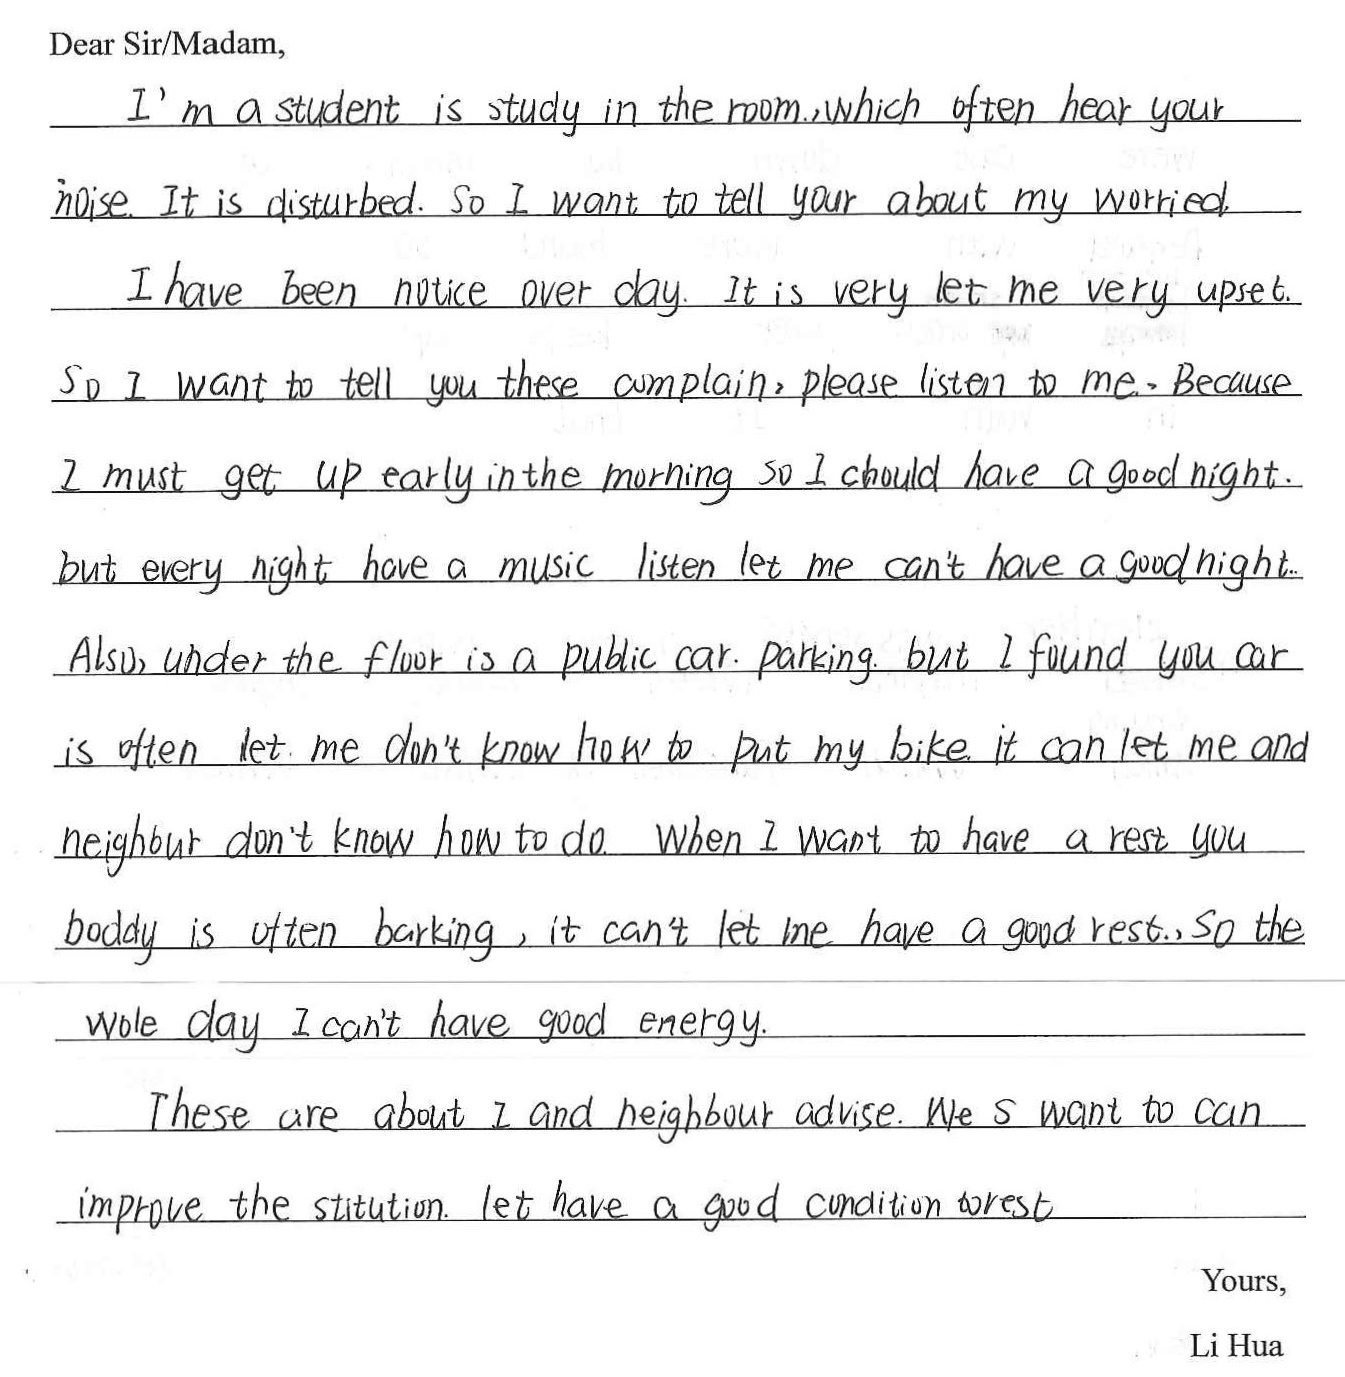 Dear Sir/Madam,
I'm a student is study in the room, which often hear your
noise. It is disturbed. So I want to tell your about my worried.
I have been notice over day. It is very let me very upset.
So I want to tell you these complain, please listen to me. Because
I must get up early in the morning so I chould have a good night.
but every night have a music listen let me can't have a good night.
Also, under the floor is a public car. parking. but I found you car
is often let me don't know how to put my bike. it can let me and
neighbur don't know how to do. When I want to have a rest you
boddy is often barking, it can't let me have a good rest., So the
wole day I can't have good energy.
These are about I and neighbour advise. We s want to can
improve the stitution. let have a good condition to rest
Yours,
Li Hua